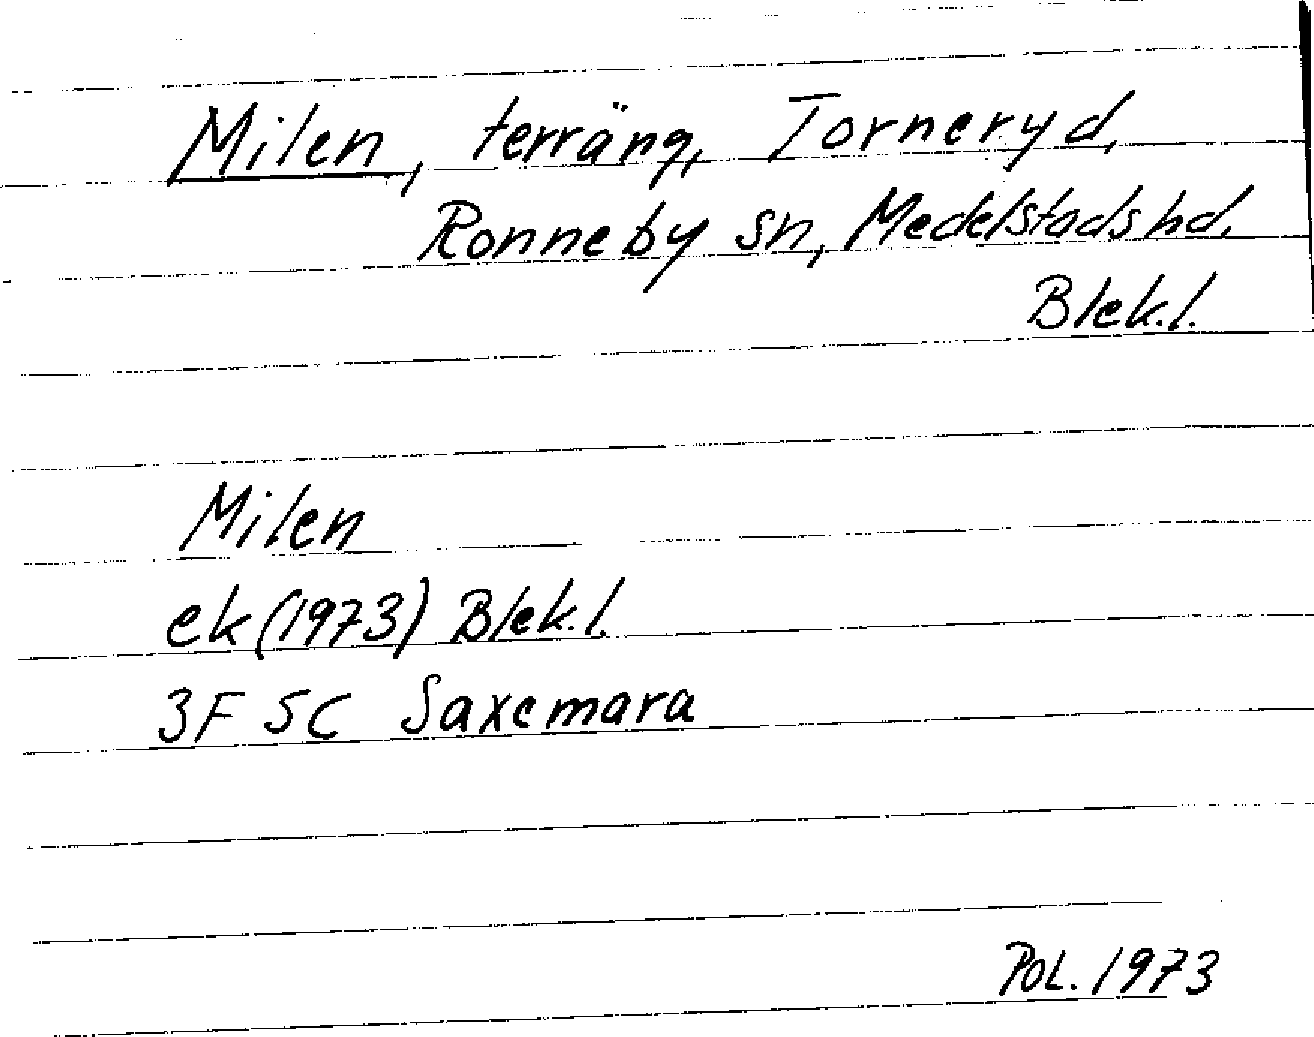 Milen, terräng, Torneryd,
Ronneby sn, Medelstads hd,
Blek.l.
Milen
ek (1973) Blek.l.
3F 5C Saxemara
Pol. 1973